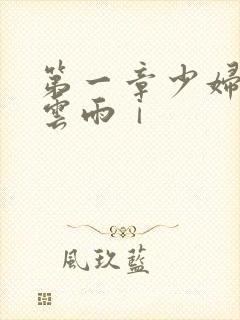 第一章少婦
雲雨｜
風玖藍